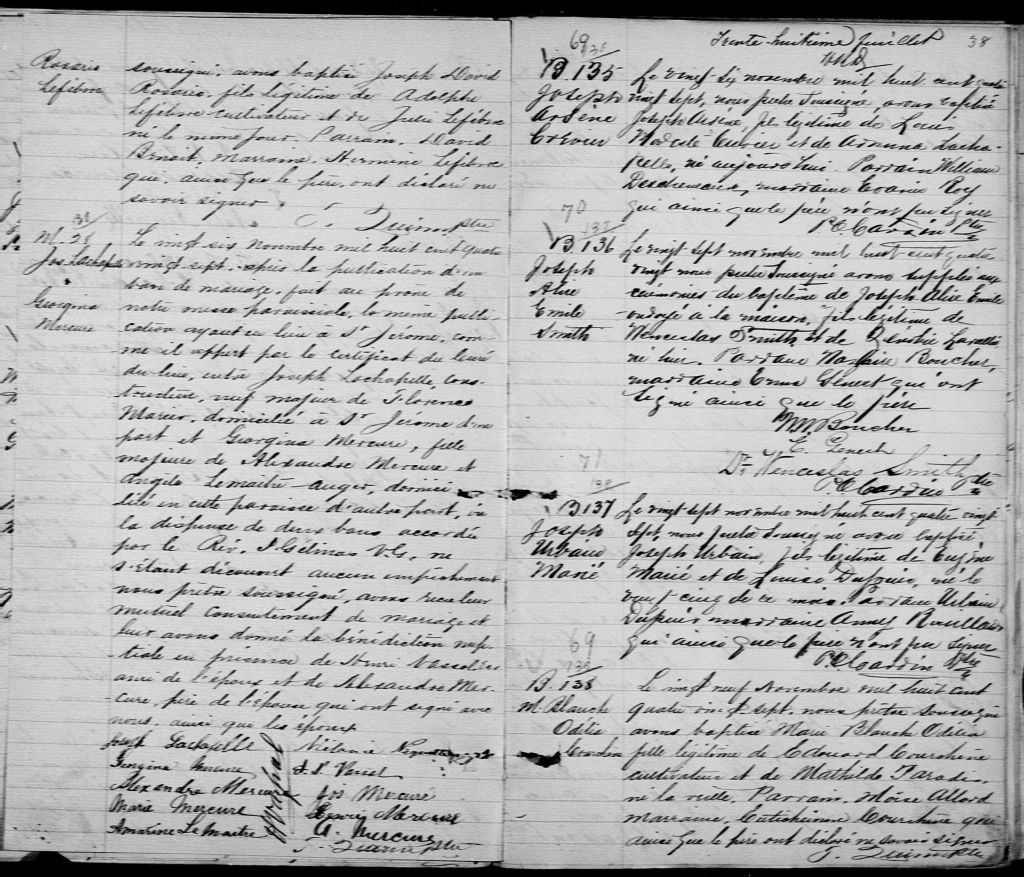 Rosario
Lefebvre
soussigné, avons baptisé Joseph David
Rosario, fils légitime de Adolphe
Lefebvre cultivateur et de Julie Lefebvre
né le même jour. Parrain, David
Benoit, marraine, Hermine Lefebvre
qui, ainsi que le père, ont déclaré ne
savoir signer.
Quinn, ptre
M. 28
Jos Lachapelle
Georgina
Mercure
Le vingt six Novembre mil huit cent quatre
vingt sept, après la publication d'un
ban de mariage, fait au prône de
notre messe paroissiale, la même publi-
cation ayant eu lieu à St Jérome, com-
me il appert par le certificat du curé
du lieu, entre Joseph Lachapelle, cons-
tructeur, veuf majeur de Florence
Marier, domicilié à St Jérome d'une
part et Georgina Mercure, fille
majeure de Alexandre Mercure et
Angèle Lemaitre-Auger, domici-
liée en cette paroisse d'autre part, vu
la dispense de deux bans accordée
par le Rév. I Gélinas V.G., ne
s'étant découvert aucun empêchement
nous prêtre soussigné, avons reçu leur
mutuel consentement de mariage et
leur avons donné la bénédiction nup-
tiale en présence de Henri Vassal
ami de l'époux et de Alexandre Mer-
cure, père de l'épouse qui ont signé avec
nous ainsi que les époux
Joseph Lachapelle
Georgina Mercure
Alexandre Mercure
Marie Mercure
Amarine Lemaitre
H Vassal
Mélanie
Jos Mercure
Henry Mercure
A. Mercure
J. Quinn ptre
Trente-huitième feuillet
38
69
B 135
Joseph
Arsène
Crévier
Le vingt six novembre mil huit cent quatre
vingt sept, nous prêtre soussigné avons baptisé
Joseph Arsène, fils légitime de Louis
Crévier et de Lacha-
pelle, né aujourd'hui Parrain William
Desruisseaux, marraine Evanie Roy
qui ainsi que le père n'ont pu signer
P O Cardin Ptre
70
B 136
Joseph
Alie
Emile
Smith
Le vingt sept novembre mil huit cent quatre
vingt nous prêtre soussigné avons suppléé aux
cérémonies du baptême de Joseph Alie Emile
ondoyé à la maison, fils légitime de
Wenceslas Smith et de Lavallée
né hier. Parrain Boucher,
marraine Emma Genest qui ont
signé ainsi que le père
Boucher
E. Genest
Dr. Wenceslas Smith
P O Cardin Ptre
71
B 137
Joseph
Urbain
Marié
Le vingt sept novembre mil huit cent quatre vingt
sept, nous prêtre soussigné avons baptisé
Joseph Urbain, fils légitime de Eugène
Marié et de Louise Dupuis, né le
vingt cinq de ce mois. Parrain Urbain
Dupuis marraine Anny Rouillard
qui ainsi que le père n'ont pu signer
P O Cardin Ptre
69
B. 138
M. Blanche
Odélia
Le vingt neuf Novembre mil huit cent
quatre vingt sept, nous prêtre soussigné
avons baptisé Marie Blanche Odélia
fille légitime de Edouard Courchène
cultivateur et de Mathilde Paradis,
né la veille. Parrain, Moïse Allard
marraine, Courchène qui
ainsi que le père ont déclaré ne savoir signer
J. Quinn ptre